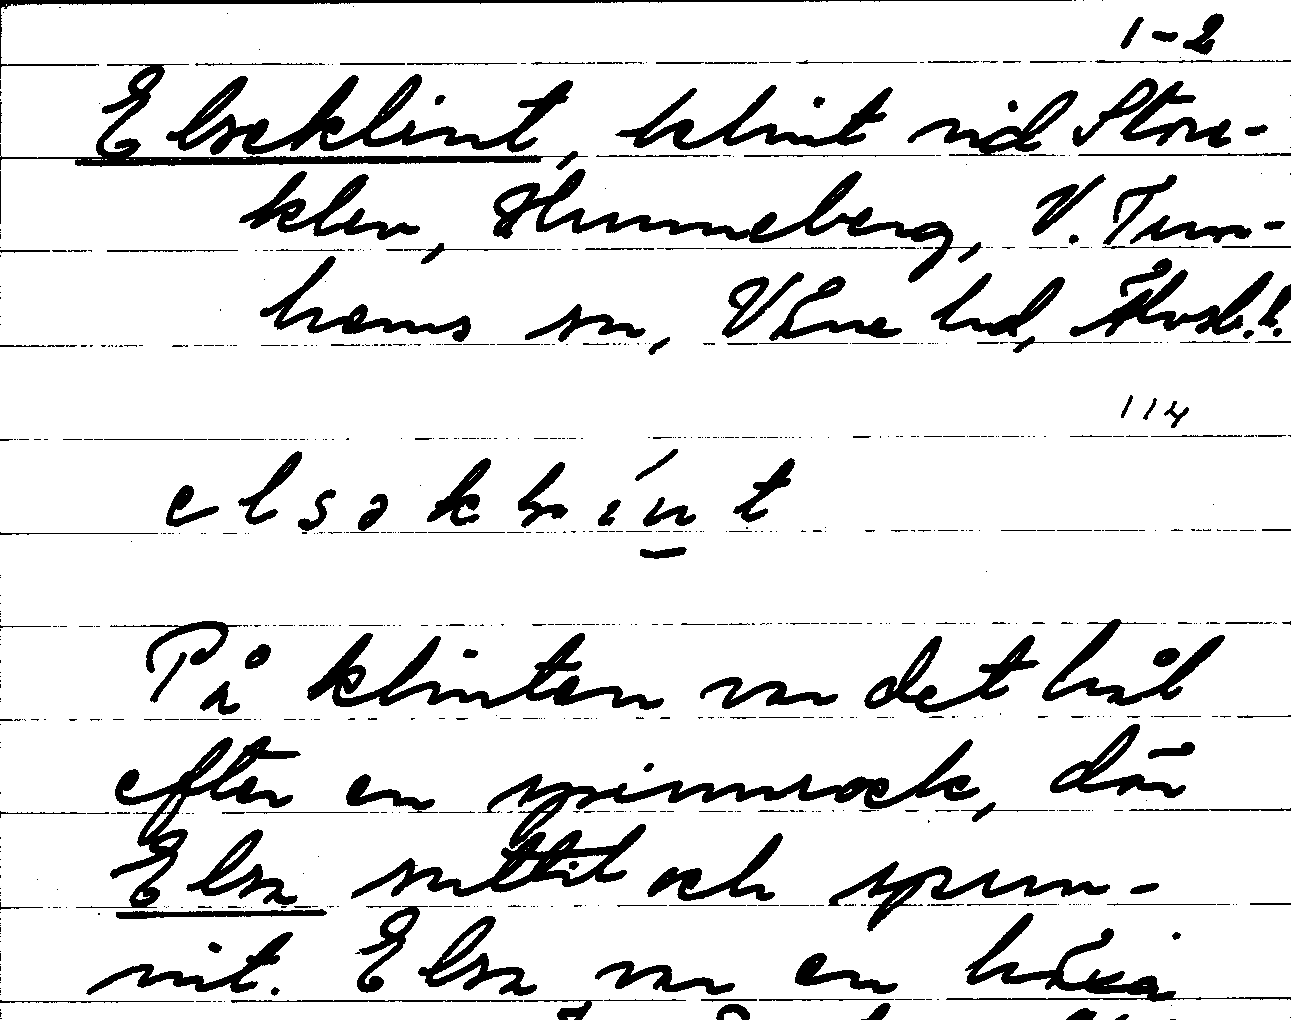 1-2
Elseklint, klint vid Store-
klev, Hunneberg, V. Tun-
hems sn, Väne hd, Älvsb.l.
114
På klinten var det hål
efter en spinnrock, där
Elsa suttit och spun-
nit. Elsa var en häxa